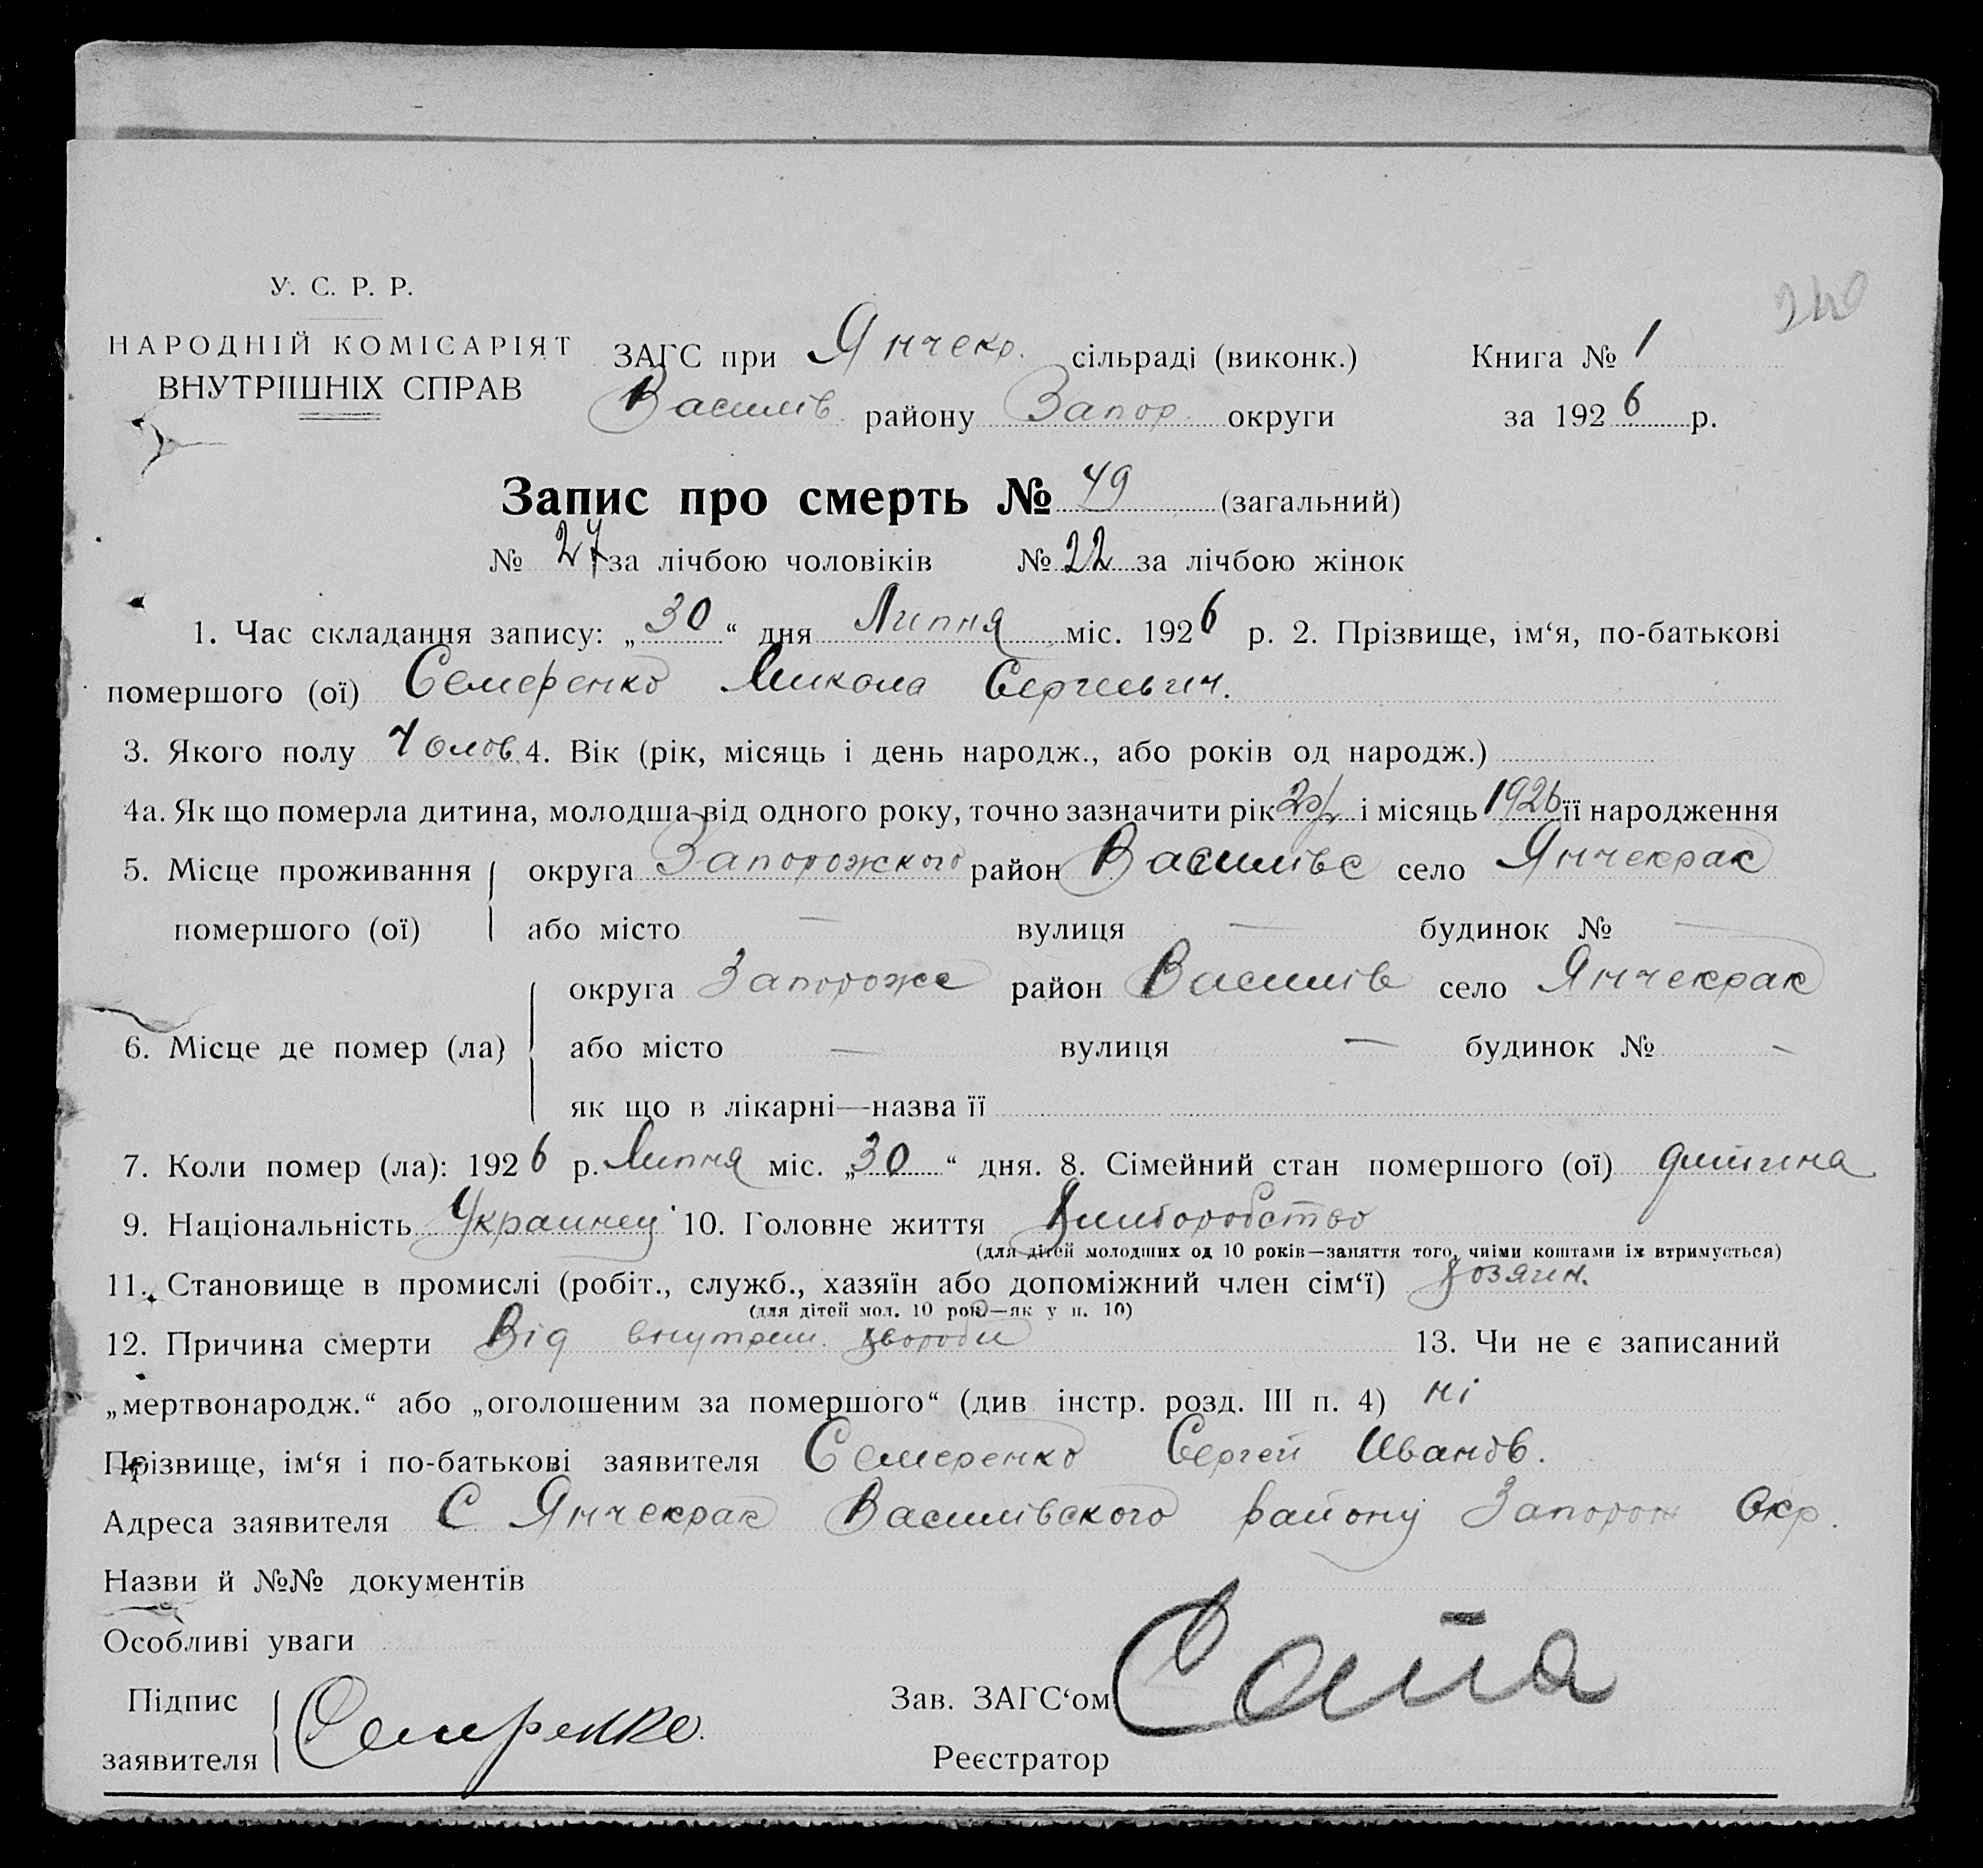 240
У. С. Р. Р.
НАРОДНІЙ КОМІСАРІЯТ
ВНУТРІШНІХ СПРАВ
ЗАГС при Янчекр. сільраді (виконк.) Книга № 1
Василів району Запор. округи за 1926 р.
Запис про смерть № 49 (загальний)
№ 27 за лічбою чоловіків № 22 за лічбою жінок
1. Час складання запису: „30“ дня Липня міс. 1926 р. 2. Прізвище, ім‘я, по-батькові
помершого (ої) Семеренко Микола Сергиевич.
3. Якого полу Чолов. 4. Вік (рік, місяць і день народж., або років од народж.)
4а. Як що померла дитина, молодша від одного року, точно зазначити рік і місяць 1926 її народження
5. Місце проживання округа Запорожского район Василівс село Янчекрак
помершого (ої) або місто — вулиця — будинок № —
округа Запорожс район Василів село Янчекрак
6. Місце де помер (ла) або місто — вулиця — будинок № -
як що в лікарні—назва її
7. Коли помер (ла): 1926 р. Липня міс. „30“ дня. 8. Сімейний стан помершого (ої) дитина
9. Національність Украинец 10. Головне життя Хлиборобство
(для дітей молодших од 10 років—заняття того, чиїми коштами їх втримується)
11. Становище в промислі (робіт., служб., хазяїн або допоміжний член сім‘ї) хозяин.
(для дітей мол. 10 рок.—як у п. 10)
12. Причина смерти Від внутреш. хвороби 13. Чи не є записаний
„мертвонародж.“ або „оголошеним за помершого“ (див інстр. розд. III п. 4) ні
Прізвище, ім‘я і по-батькові заявителя Семеренко Сергей Иванов.
Адреса заявителя С Янчекрак Василівского району Запорож Окр.
Назви й №№ документів
Особливі уваги
Підпис
заявителя Семеренко.
Зав. ЗАГС‘ом
Реєстратор